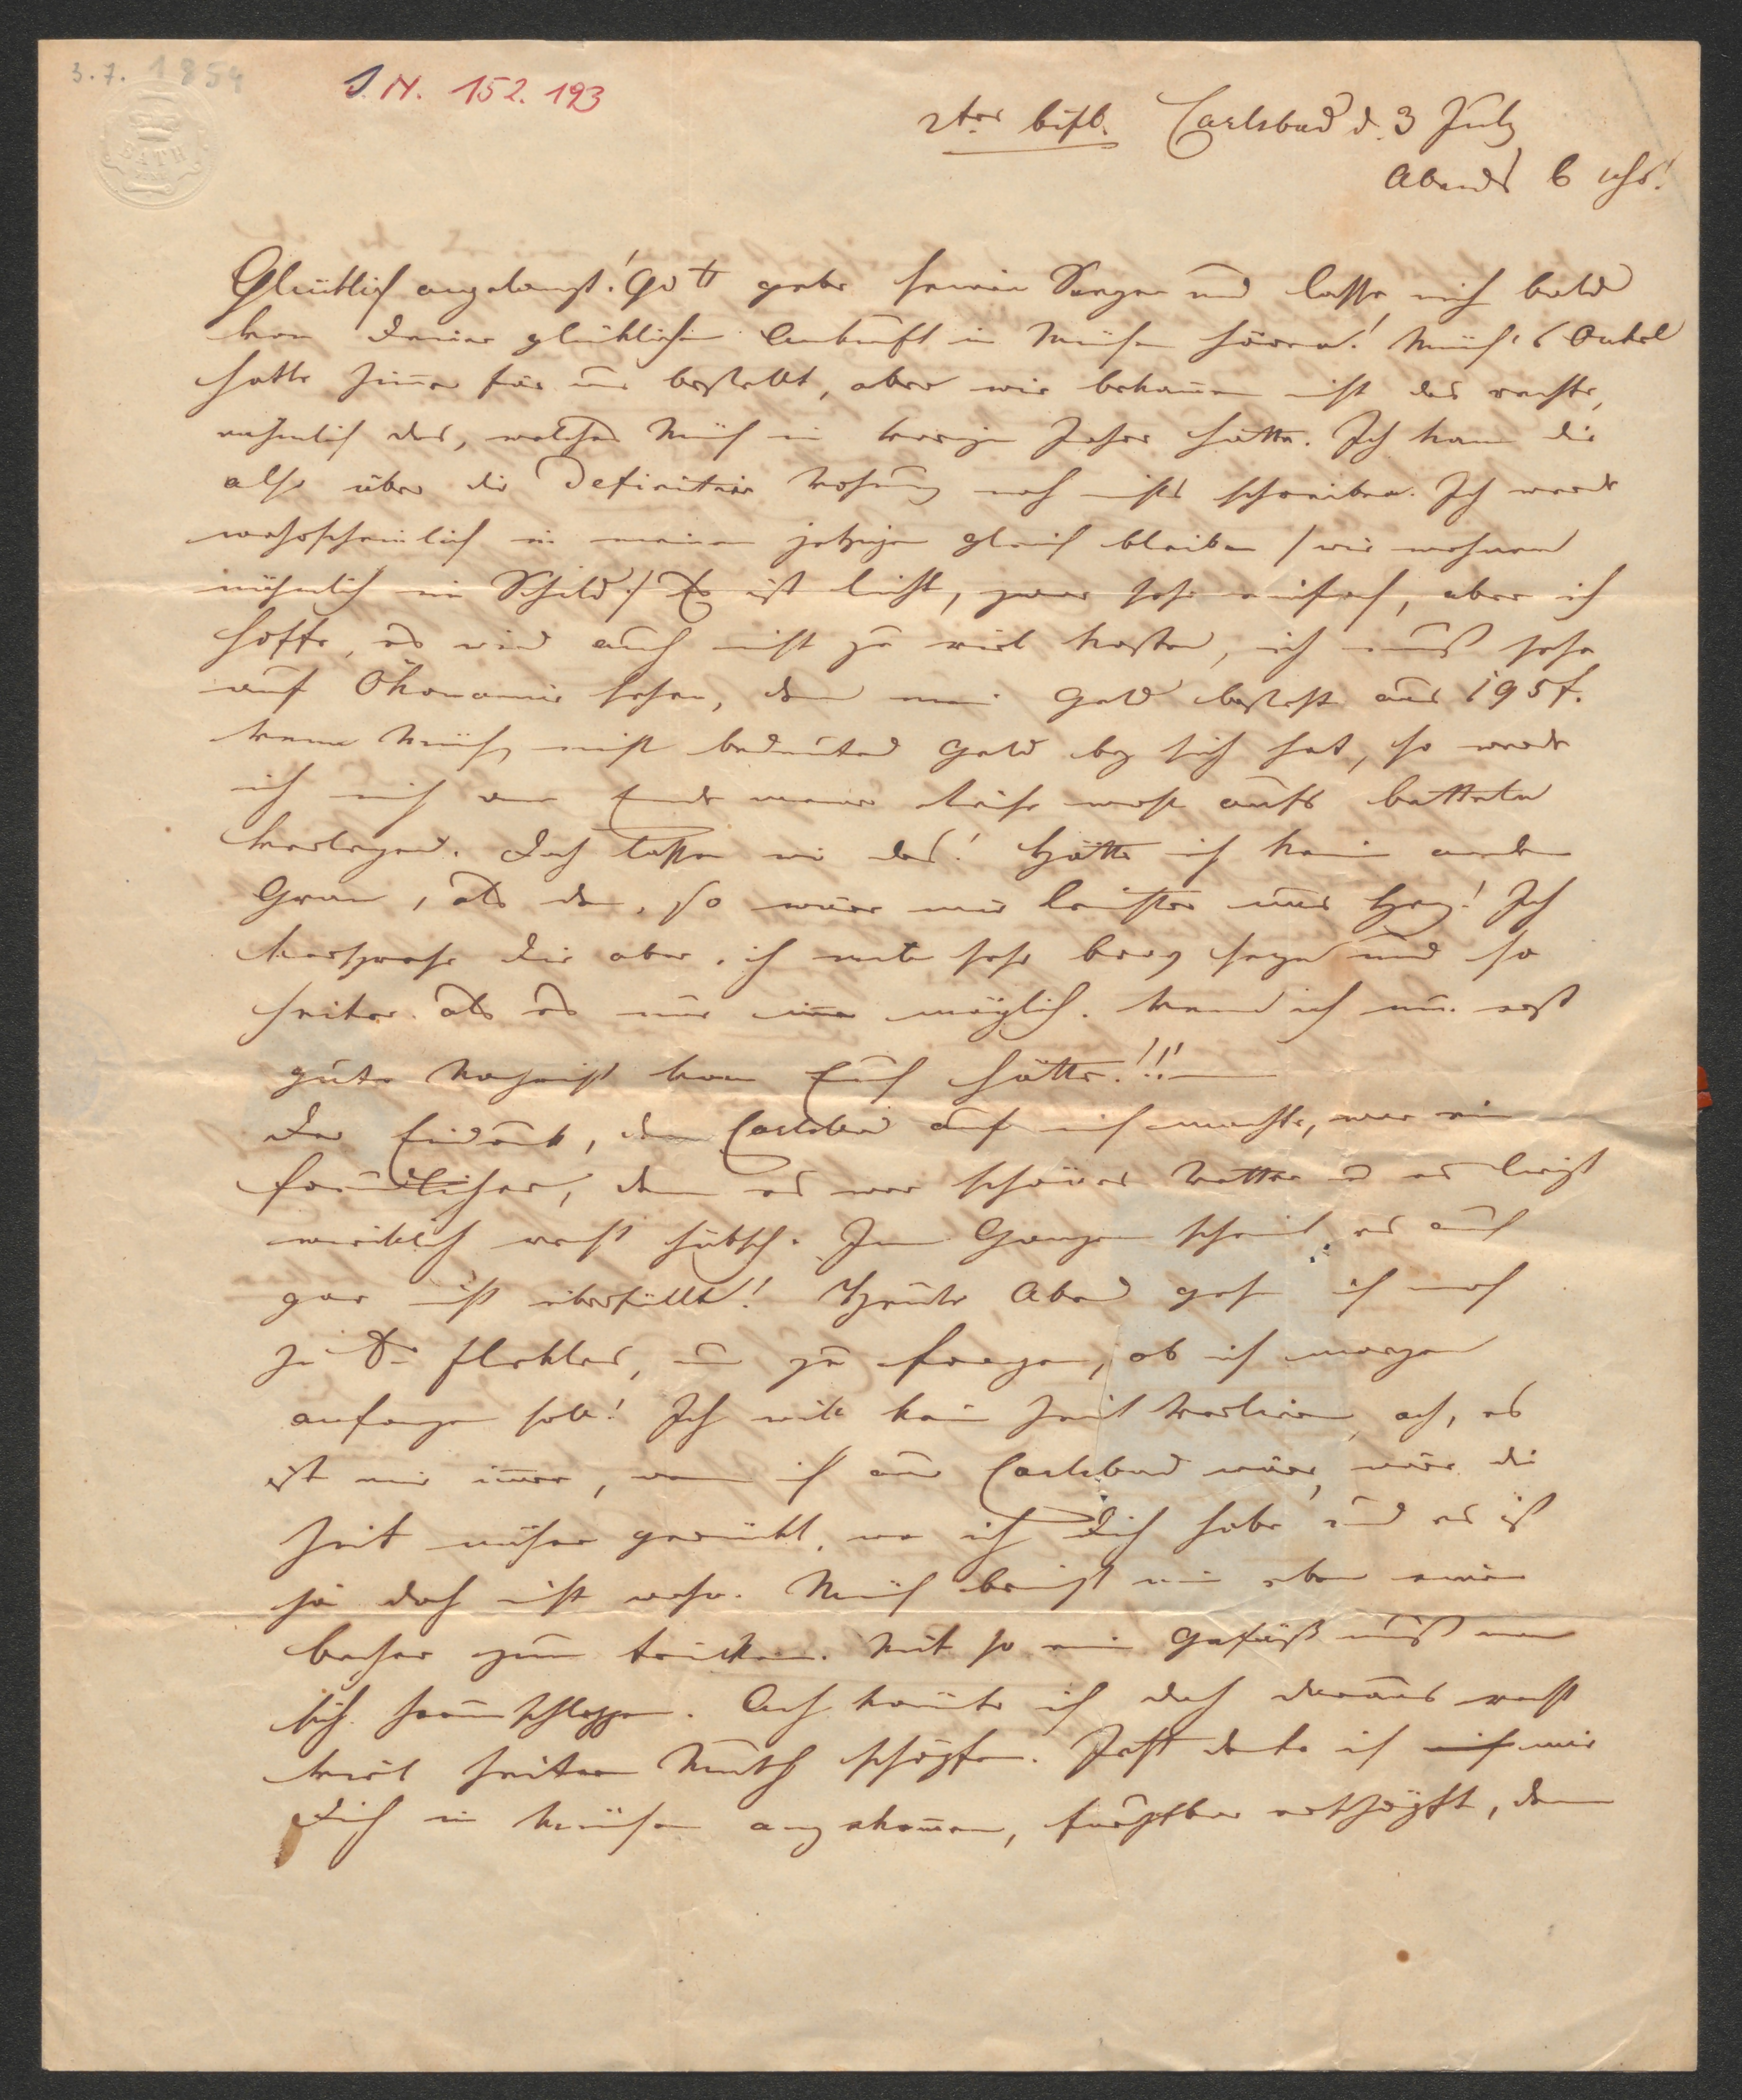 3.7. 1854
I.N. 152.193
BATH
2ter Carlsbad d. 3 July
Abends 6 Uhr!
Glücklich angelangt! Gott gebe seinen Segen und lasse mich bald
von Deiner glücklichen Ankunft in hören! Onkel
hatte Zimmer für uns bestellt, aber wir bekamen nicht das rechte,
nehmlich das, welches im vorigen Jahre hatte. Ich kann Dir
also über die Definitive Wohnung noch nichts schreiben. Ich werde
wahrscheinlich in meiner jetzigen gleich bleiben /wir wohnen
nähmlich im Schild/ Es ist licht, zwar sehr einfach, aber ich
hoffe, es wird auch nicht zu viel kosten, ich muß sehr
auf Ökonomie sehen, denn mein Geld besteht aus 195 f.
wenn nicht bedeutend Geld bey sich hat, so werde
ich mich am Ende meiner Reise wohl aufs betteln
verlegen. Doch lassen wir das! Hätte ich kein andern
Gram, als den, so wäre mir leichter ums Herz! Ich
verspreche Dir aber, ich will sehr brav seyn und so
heiter als es nur immer möglich. Wenn ich nur erst
gute Nachricht von Euch hätte!!!
Der Eindruck, den Carlsbad auf mich machte, war ein
freundlicher, denn es war schönes Wetter u es liegt
wirklich recht hübsch. Im Ganzen scheint es auch
gar nicht überfüllt! Heute Abend geh ich noch
zu Dr Fleckles, um zu fragen, ob ich morgen
anfangen soll! Ich will kein Zeit verlieren, ach, es
ist mir immer, wenn ich aus Carlsbad wäre, wäre die
Zeit näher gerückt, wo ich Dich habe und es ist
ja doch nicht wahr. bringt mir eben einen
Becher zum trinken. Mit so ein Gefäß muß man
sich herumschleppen. Ach könnte ich doch daraus recht
viel heitern Muth schöpfen. Jetzt denke ich mir
Dich in angekommen, furchtbar erschöpft, denn